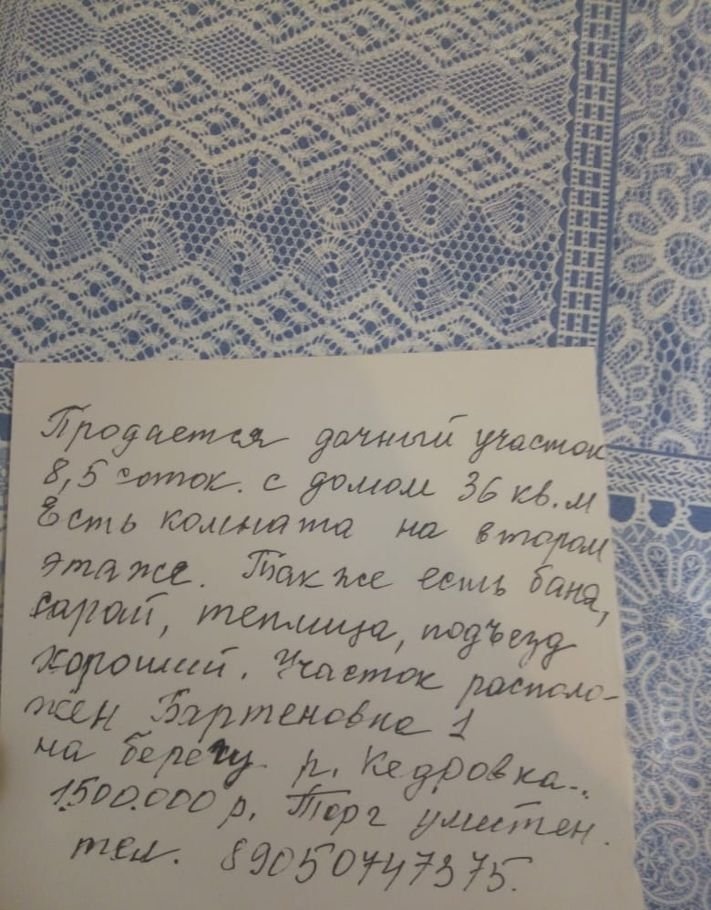 Продается дачный участок
8,5 соток. с домом 36 кв.м
Есть комната на втором
этаже. Также есть баня,
сарай, теплица, подъезд
хороший. Участок располо-
жен Бартеновка 1
на берегу р. Кедровка.
1.500.000 р. Торг уместен.
тел. 89050747375.